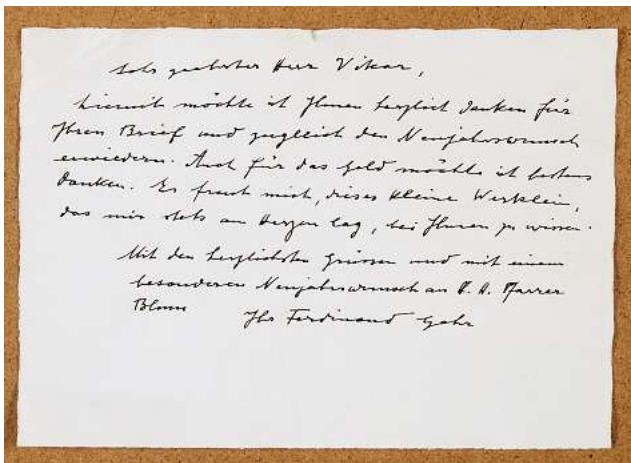 Sehr geehrter Herr Vikar,
hiermit möchte ich Ihnen herzlich danken für
Ihren Brief und zugleich den Neujahrswunsch
erwiedern. Auch für das Geld möchte ich bestens
danken. Es freut mich, dieses kleine Werklein,
das mir stets am Herzen lag, bei Ihnen zu wissen.
Mit den herzlichsten Grüssen und mit einem
besonderen Neujahrswunsch an H. H. Pfarrer
Blum
Ihr Ferdinand Gehr